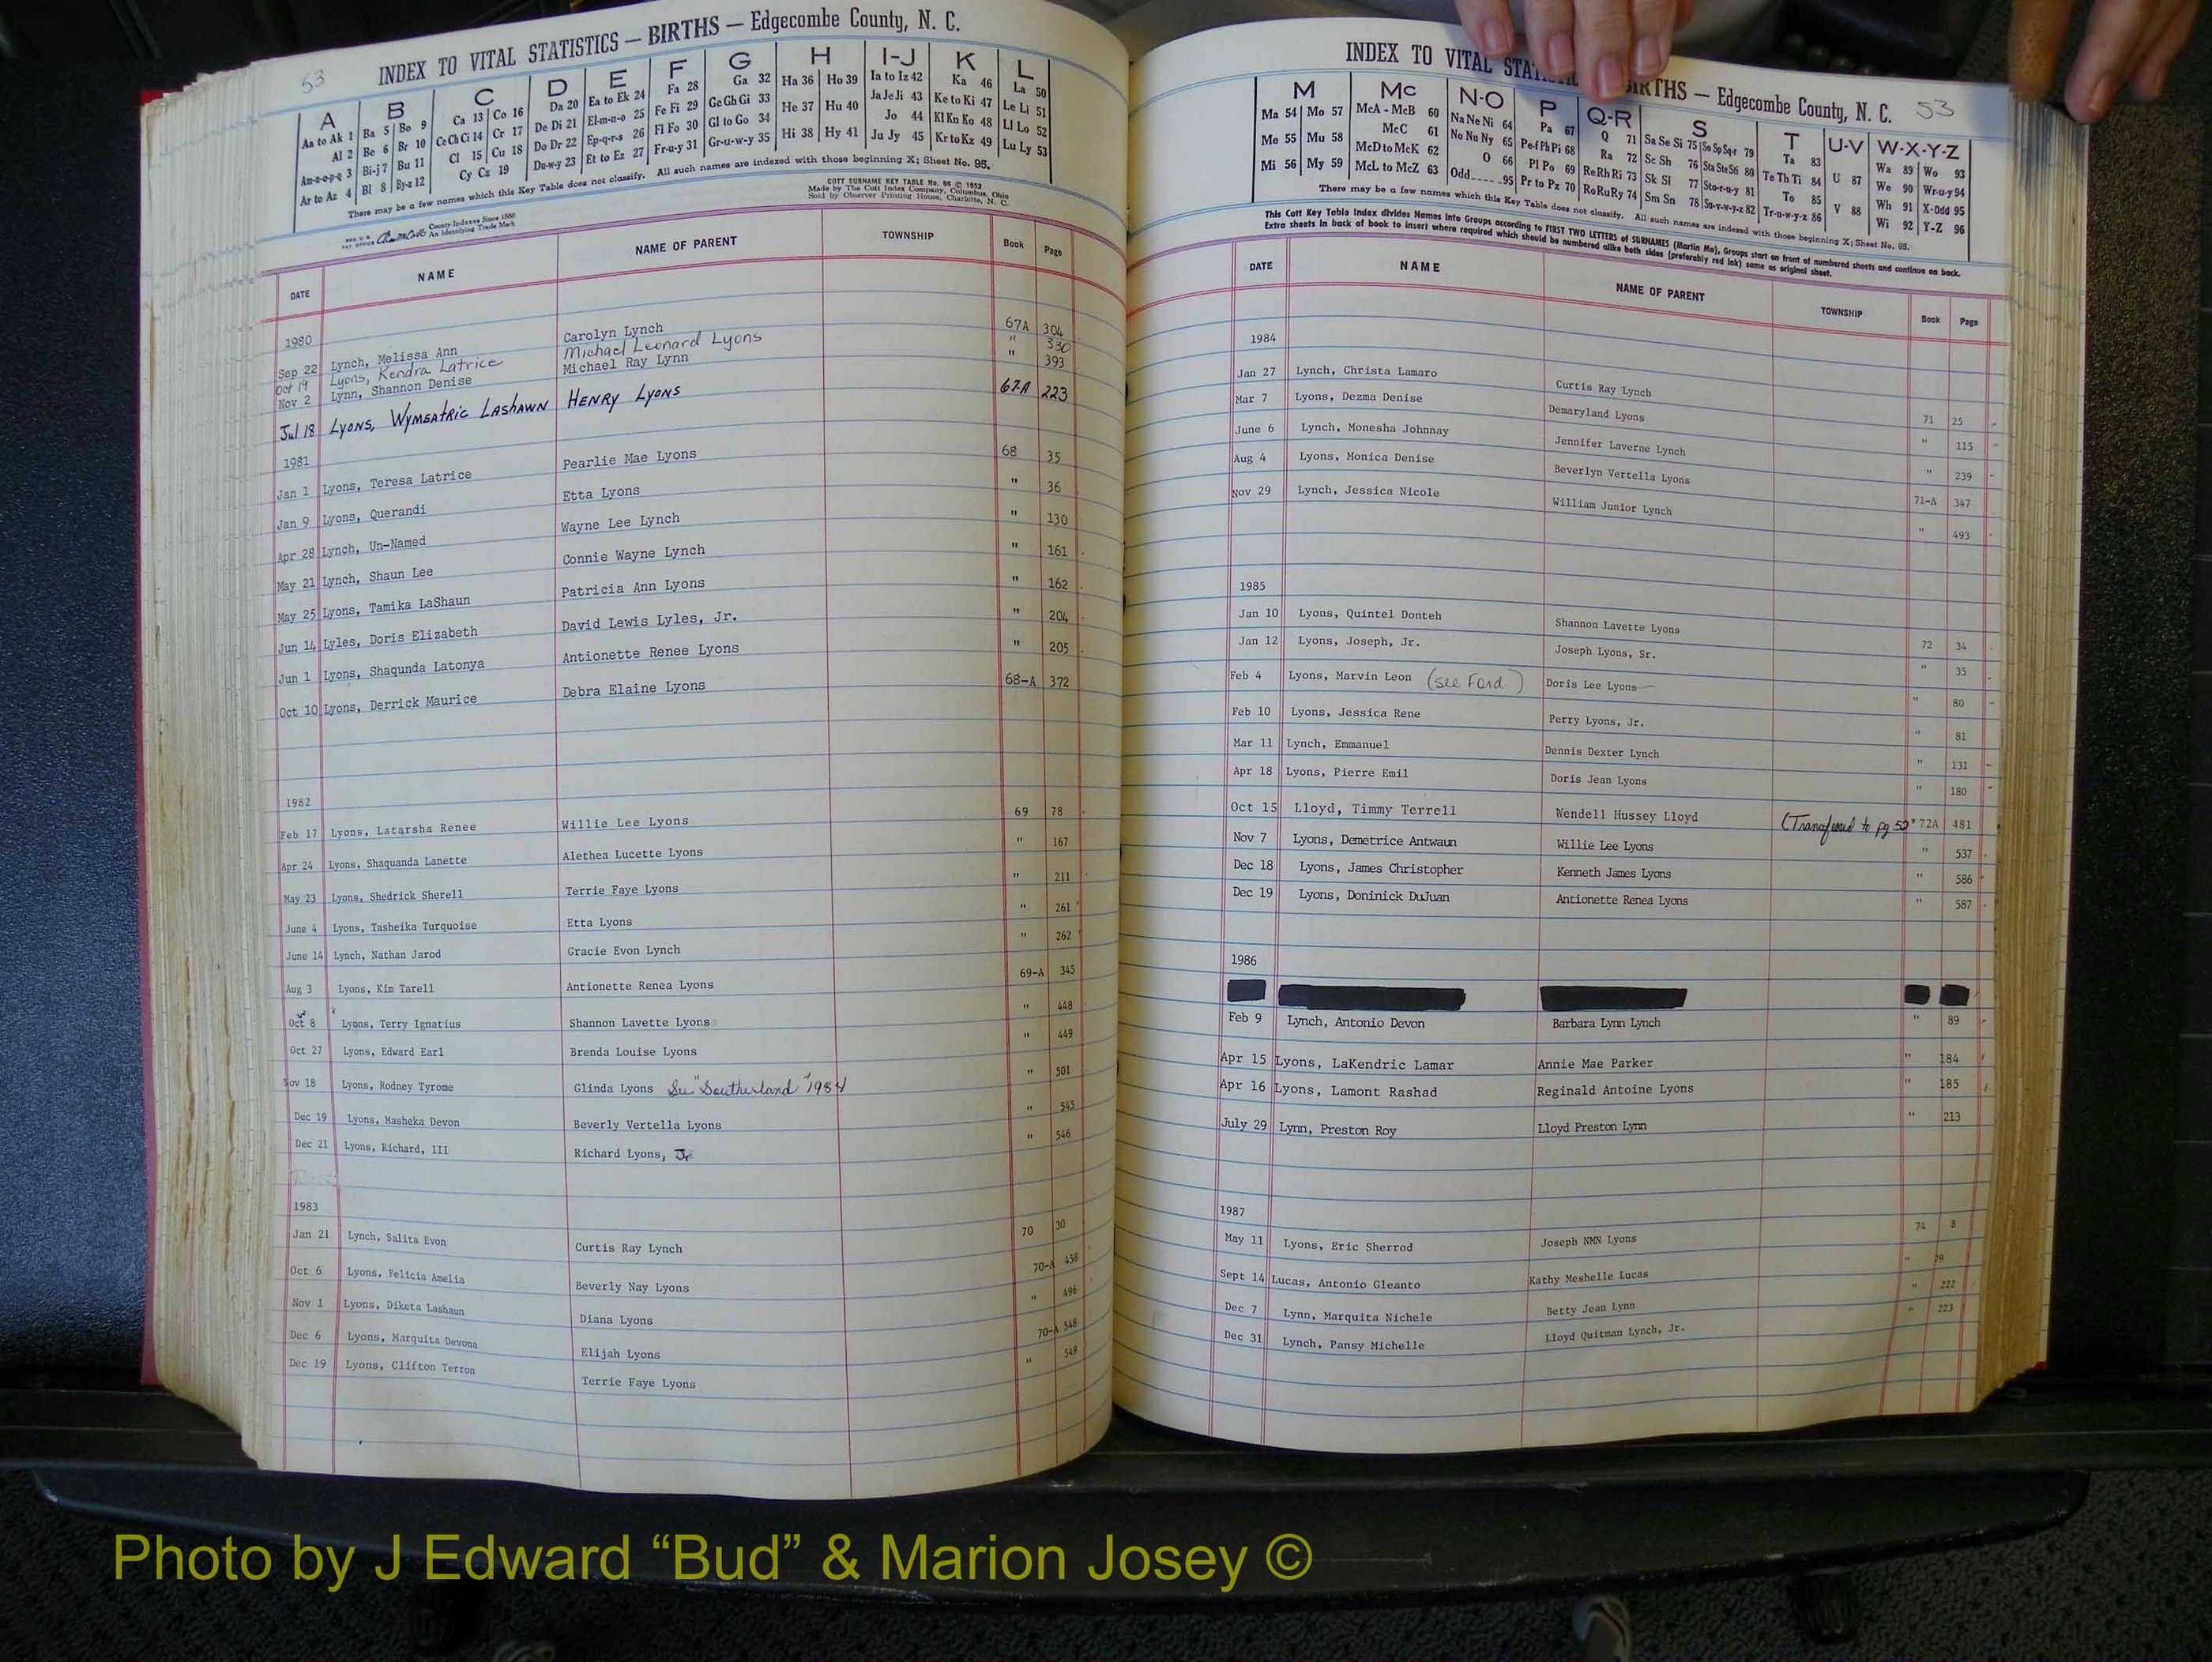 53
INDEX TO VITAL STATISTICS — BIRTHS — Edgecombe County, N. C.
A B C D E F G H I-J K L
Aa to Ak 1 Ba 5 Bo 9 Ca 13 Co 16 Da 20 Ea to Ek 24 Fa 28 Ga 32 Ha 36 Ho 39 Ia to Iz 42 Ka 46 La 50
Al 2 Be 6 Br 10 Ce Ch Ci 14 Cr 17 De Di 21 El-m-n-o 25 Fe Fi 29 Ge Gh Gi 33 He 37 Hu 40 Ja Je Ji 43 Ke to Ki 47 Le Li 51
Am-n-o-p-q 3 Bi-j 7 Bu 11 Cl 15 Cu 18 Do Dr 22 Ep-q-r-s 26 Fl Fo 30 Gl to Go 34 Hi 38 Hy 41 Jo 44 Kl Kn Ko 48 Ll Lo 52
Ar to Az 4 Bl 8 By-z 12 Cy Cz 19 Du-w-y 23 Et to Ez 27 Fr-u-y 31 Gr-u-w-y 35 Ju Jy 45 Kr to Kz 49 Lu Ly 53
There may be a few names which this Key Table does not classify. All such names are indexed with those beginning X; Sheet No. 95.
COTT SURNAME KEY TABLE No. 96 © 1952
Made by The Cott Index Company, Columbus, Ohio
Sold by Observer Printing House, Charlotte, N. C.
County Indexes Since 1888
An Identifying Trade Mark
DATE NAME NAME OF PARENT TOWNSHIP Book Page
1980
Sep 22 Lynch, Melissa Ann Carolyn Lynch 67A 304
Oct 19 Lyons, Kendra Latrice Michael Leonard Lyons " 330
Nov 2 Lynn, Shannon Denise Michael Ray Lynn " 393
Jul 18 Lyons, Wymeatric Lashawn Henry Lyons 67-A 223
1981
Jan 1 Lyons, Teresa Latrice Pearlie Mae Lyons 68 35
Jan 9 Lyons, Querandi Etta Lyons " 36
Apr 28 Lynch, Un-Named Wayne Lee Lynch " 130
May 21 Lynch, Shaun Lee Connie Wayne Lynch " 161
May 25 Lyons, Tamika LaShaun Patricia Ann Lyons " 162
Jun 14 Lyles, Doris Elizabeth David Lewis Lyles, Jr. " 204
Jun 1 Lyons, Shaqunda Latonya Antionette Renee Lyons " 205
Oct 10 Lyons, Derrick Maurice Debra Elaine Lyons 68-A 372
1982
Feb 17 Lyons, Latarsha Renee Willie Lee Lyons 69 78
Apr 24 Lyons, Shaquanda Lanette Alethea Lucette Lyons " 167
May 23 Lyons, Shedrick Sherell Terrie Faye Lyons " 211
June 4 Lyons, Tasheika Turquoise Etta Lyons " 261
June 14 Lynch, Nathan Jarod Gracie Evon Lynch " 262
Aug 3 Lyons, Kim Tarell Antionette Renea Lyons 69-A 345
Oct 8 Lyons, Terry Ignatius Shannon Lavette Lyons " 448
Oct 27 Lyons, Edward Earl Brenda Louise Lyons " 449
Nov 18 Lyons, Rodney Tyrome Glinda Lyons See "Southerland" 1984 " 501
Dec 19 Lyons, Masheka Devon Beverly Vertella Lyons " 545
Dec 21 Lyons, Richard, III Richard Lyons, Jr " 546
1983
Jan 21 Lynch, Salita Evon Curtis Ray Lynch 70 30
Oct 6 Lyons, Felicia Amelia Beverly Nay Lyons 70-A 458
Nov 1 Lyons, Diketa Lashaun Diana Lyons " 496
Dec 6 Lyons, Marquita Devona Elijah Lyons 70-A 548
Dec 19 Lyons, Clifton Terron Terrie Faye Lyons " 549
INDEX TO VITAL BIRTHS — Edgecombe County, N. C. 53
M Mc N-O P Q-R S T U-V W-X-Y-Z
Ma 54 Mo 57 McA - McB 60 Na Ne Ni 64 Pa 67 Q 71 Sa Se Si 75 So Sp Sq-r 79 Ta 83 U 87 Wa 89 Wo 93
Me 55 Mu 58 McC 61 No Nu Ny 65 Pe-f Ph Pi 68 Ra 72 Sc Sh 76 Sta Ste Sti 80 Te Th Ti 84 V 88 We 90 Wr-u-y 94
Mi 56 My 59 McD to McK 62 O 66 Pl Po 69 Re Rh Ri 73 Sk Sl 77 Sto-r-u-y 81 To 85 Wh 91 X-Odd 95
McL to McZ 63 Odd 95 Pr to Pz 70 Ro Ru Ry 74 Sm Sn 78 Su-v-w-y-z 82 Tr-u-w-y-z 86 Wi 92 Y-Z 96
There may be a few names which this Key Table does not classify. All such names are indexed with those beginning X; Sheet No. 95.
This Cott Key Table Index divides Names into Groups according to FIRST TWO LETTERS of SURNAMES (Martin Ma), Groups start on front of numbered sheets and continue on back.
Extra sheets in back of book to insert where required which should be numbered alike both sides (preferably red ink) same as original sheet.
DATE NAME NAME OF PARENT TOWNSHIP Book Page
1984
Jan 27 Lynch, Christa Lamaro Curtis Ray Lynch 71 25
Mar 7 Lyons, Dezma Denise Demaryland Lyons " 115
June 6 Lynch, Monesha Johnnay Jennifer Laverne Lynch " 239
Aug 4 Lyons, Monica Denise Beverlyn Vertella Lyons 71-A 347
Nov 29 Lynch, Jessica Nicole William Junior Lynch " 493
1985
Jan 10 Lyons, Quintel Donteh Shannon Lavette Lyons 72 34
Jan 12 Lyons, Joseph, Jr. Joseph Lyons, Sr. " 35
Feb 4 Lyons, Marvin Leon (see Ford) Doris Lee Lyons " 80
Feb 10 Lyons, Jessica Rene Perry Lyons, Jr. " 81
Mar 11 Lynch, Emmanuel Dennis Dexter Lynch " 131
Apr 18 Lyons, Pierre Emil Doris Jean Lyons " 180
Oct 15 Lloyd, Timmy Terrell Wendell Hussey Lloyd (Transfered to pg 52) 72A 481
Nov 7 Lyons, Demetrice Antwaun Willie Lee Lyons " 537
Dec 18 Lyons, James Christopher Kenneth James Lyons " 586
Dec 19 Lyons, Doninick DuJuan Antionette Renea Lyons " 587
1986
Feb 9 Lynch, Antonio Devon Barbara Lynn Lynch " 89
Apr 15 Lyons, LaKendric Lamar Annie Mae Parker " 184
Apr 16 Lyons, Lamont Rashad Reginald Antoine Lyons " 185
July 29 Lynn, Preston Roy Lloyd Preston Lynn " 213
1987
May 11 Lyons, Eric Sherrod Joseph NMN Lyons 74 8
Sept 14 Lucas, Antonio Gleanto Kathy Meshelle Lucas " 79
Dec 7 Lynn, Marquita Nichele Betty Jean Lynn " 222
Dec 31 Lynch, Pansy Michelle Lloyd Quitman Lynch, Jr. " 223
Photo by J Edward “Bud” & Marion Josey ©